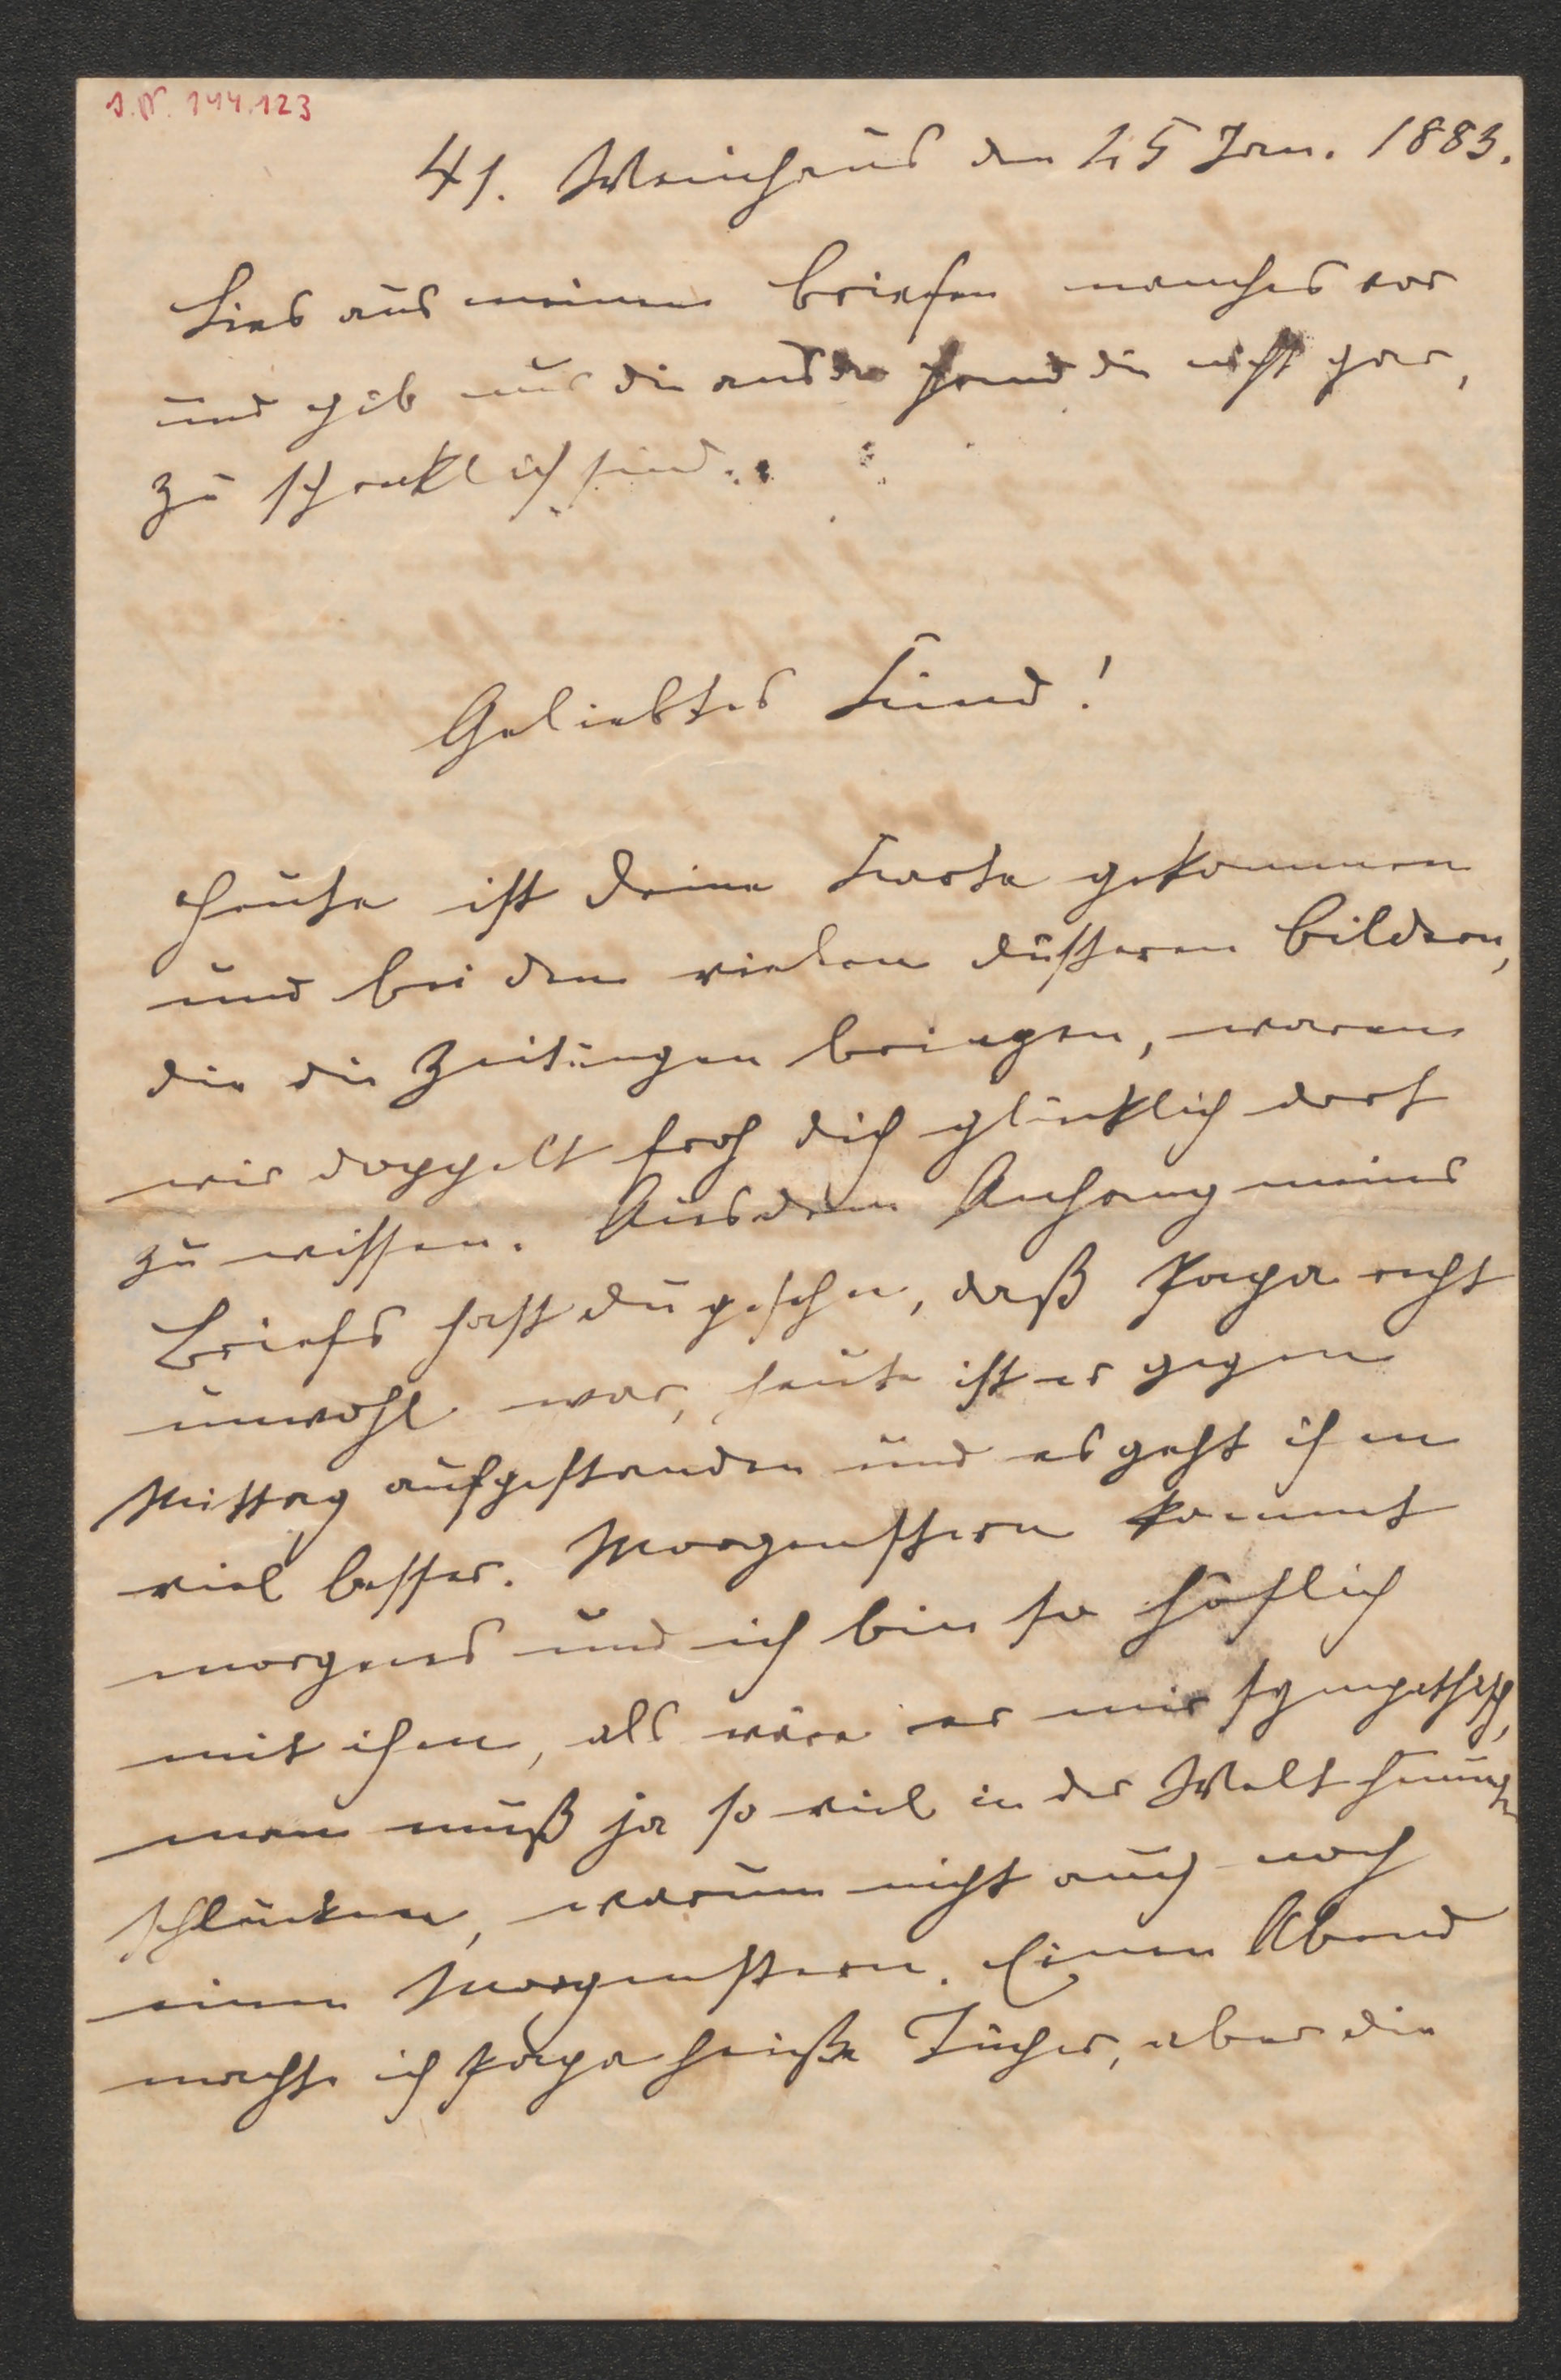 I.N. 144.123
41. Weinhaus den 25 Jan. 1883.
Lies aus meinen Briefen manches vor
und gib nur die aus der Hand die nicht gar,
zu schreklich sind.
Geliebtes Kind!
Heute ist Deine Karte gekommen
und bei den vielen düsteren Bildern,
die die Zeitungen bringen, waren
wir doppelt froh dich glücklich dort
zu wissen. Aus dem Anhang meines
Briefs hast du gesehn, daß Papa recht
unwohl war, heute ist er gegen
Mittag aufgestanden und es geht ihm
viel besser. Morgenstern kommt
morgens und ich bin so höflich
mit ihm, als wäre er mir sympathisch,
man muß ja so viel in der Welt hinunter
schlucken, warum nicht auch noch
einen Morgenstern. Einen Abend
machte ich Papa heiße Tücher, aber die